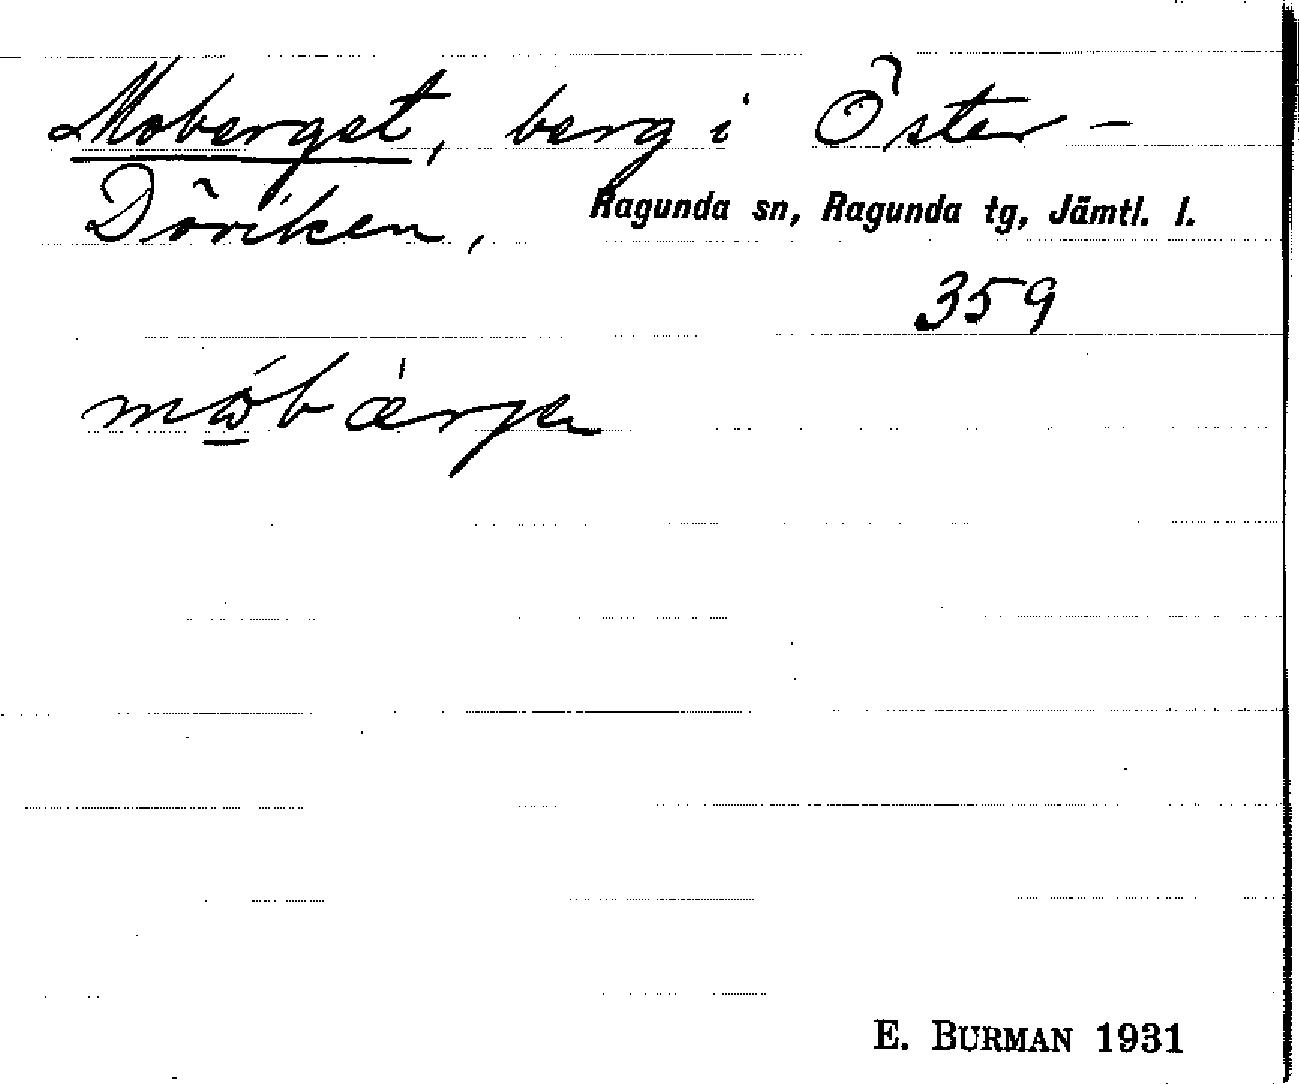 Moberget, berg i Öster-
Döviken,
Ragunda sn, Ragunda tg, Jämtl. l.
359
E. BURMAN 1931